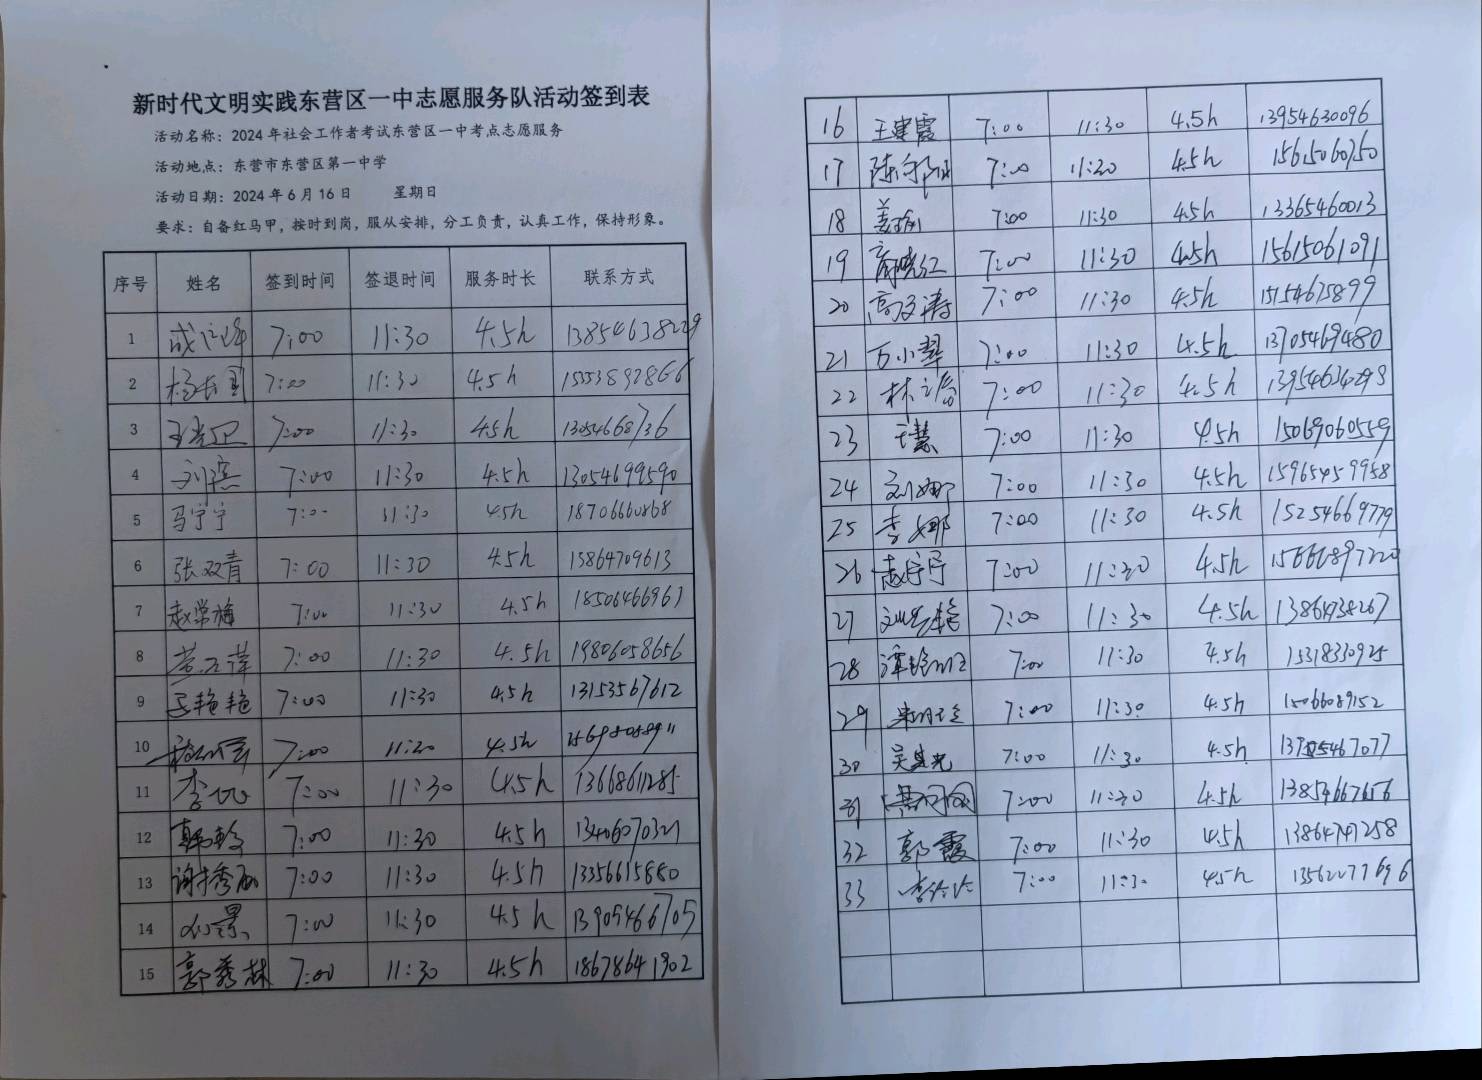 新时代文明实践东营区一中志愿服务队活动签到表
活动名称：2024年社会工作者考试东营区一中考点志愿服务
活动地点：东营市东营区第一中学
活动日期：2024年6月16日 星期日
要求：自备红马甲，按时到岗，服从安排，分工负责，认真工作，保持形象。
序号 姓名 签到时间 签退时间 服务时长 联系方式
1 7:00 11:30 4.5h 13854638229
2 7:00 11:30 4.5h 15553892866
3 7:00 11:30 4.5h 13054668736
4 刘滨 7:00 11:30 4.5h 13054699590
5 马宁宁 7:00 11:30 4.5h
6 张双青 7:00 11:30 4.5h 15864709613
7 赵学梅 7:00 11:30 4.5h 18506466967
8 7:00 11:30 4.5h 19806058656
9 艳艳 7:00 11:30 4.5h 13153567612
10 7:00 11:30 4.5h
11 7:00 11:30 4.5h 13668611285
12 7:00 11:30 4.5h 13406070321
13 谢秀丽 7:00 11:30 4.5h 13356615880
14 7:00 11:30 4.5h 13905466705
15 郭秀林 7:00 11:30 4.5h 18678641902
16 王建霞 7:00 11:30 4.5h 13954630096
17 7:00 11:30 4.5h 15615060750
18 7:00 11:30 4.5h 13365460013
19 7:00 11:30 4.5h 15615061091
20 7:00 11:30 4.5h 15154675899
21 万小翠 7:00 11:30 4.5h 13705469480
22 7:00 11:30 4.5h
23 王慧 7:00 11:30 4.5h 15069060559
24 刘娜 7:00 11:30 4.5h 15965459958
25 李娜 7:00 11:30 4.5h 15254669779
26 7:00 11:30 4.5h 15666897220
27 7:00 11:30 4.5h 13864738267
28 7:00 11:30 4.5h 15318330925
29 7:00 11:30 4.5h 15066089152
30 7:00 11:30 4.5h
31 7:00 11:30 4.5h 13854667656
32 郭霞 7:00 11:30 4.5h 13864747258
33 7:00 11:30 4.5h 13562077696